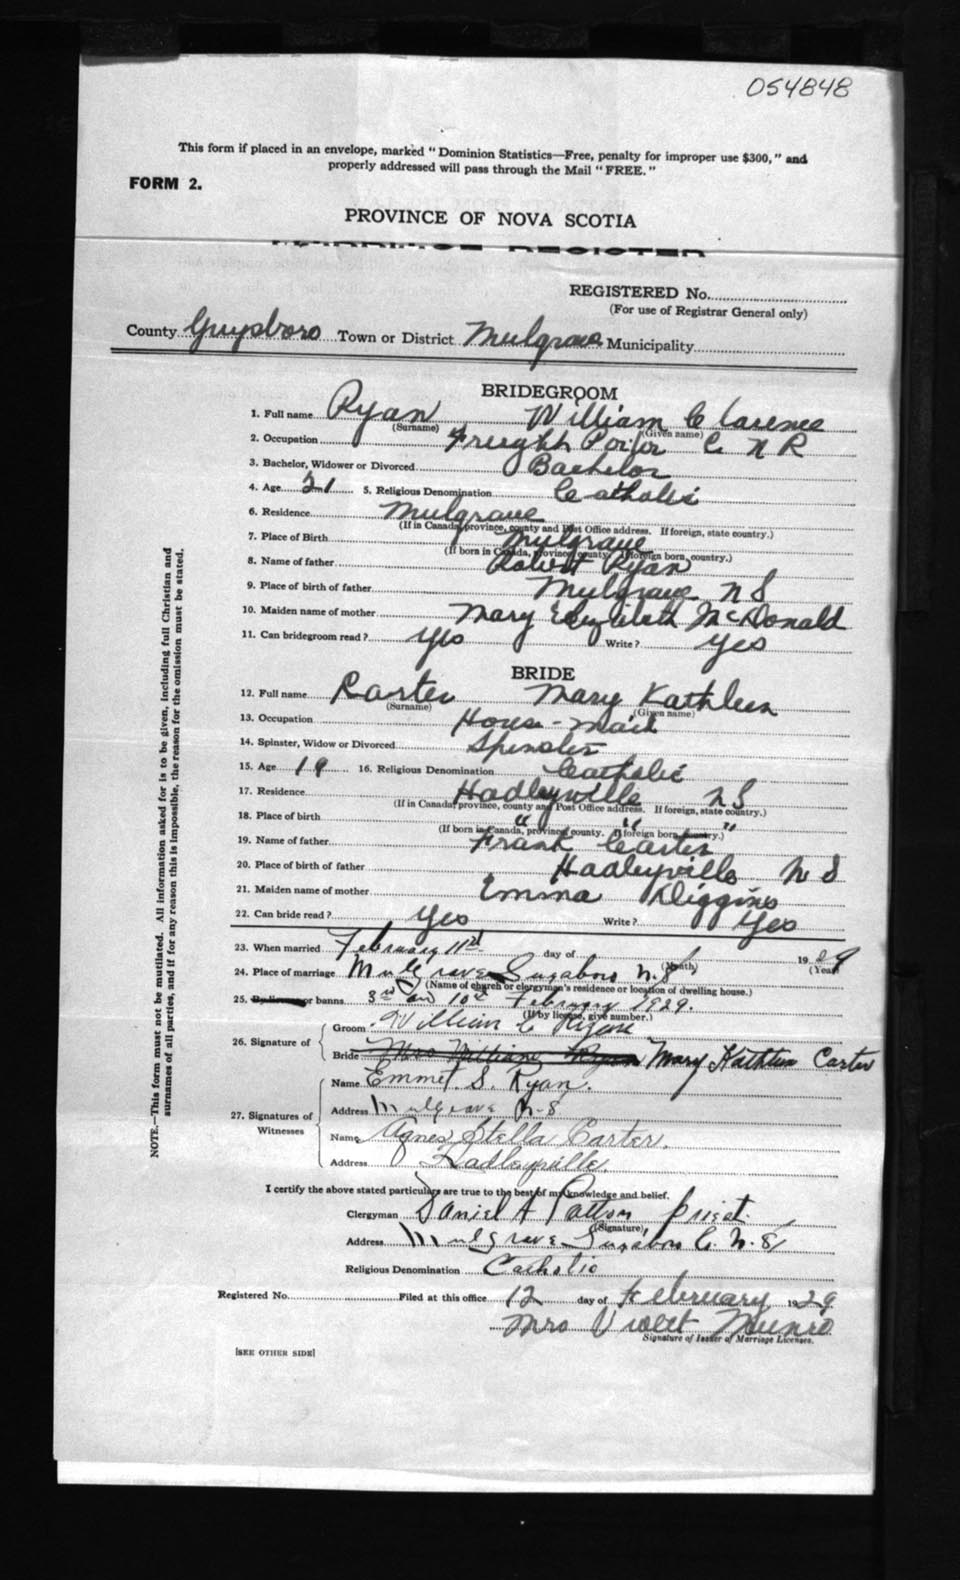 054848
This form if placed in an envelope, marked "Dominion Statistics—Free, penalty for improper use $300," and
properly addressed will pass through the Mail "FREE."
FORM 2.
PROVINCE OF NOVA SCOTIA
MARRIAGE REGISTER
REGISTERED No.
(For use of Registrar General only)
County Guysboro Town or District Mulgrave Municipality
BRIDEGROOM
1. Full name Ryan William Clarence
(Surname) (Given name)
2. Occupation Freight Porter C N R
3. Bachelor, Widower or Divorced Bachelor
4. Age 21 5. Religious Denomination Catholic
6. Residence Mulgrave
(If in Canada, province, county and Post Office address. If foreign, state country.)
7. Place of Birth Mulgrave
(If born in Canada, province, county. If foreign born, country.)
8. Name of father Robert Ryan
9. Place of birth of father Mulgrave N S
10. Maiden name of mother Mary Elizabeth McDonald
11. Can bridegroom read? Yes Write? Yes
BRIDE
12. Full name Carter Mary Kathleen
(Surname) (Given name)
13. Occupation House-maid
14. Spinster, Widow or Divorced Spinster
15. Age 19 16. Religious Denomination Catholic
17. Residence Hadleyville N S
(If in Canada, province, county and Post Office address. If foreign, state country.)
18. Place of birth " " "
(If born in Canada, province county. If foreign born, country.)
19. Name of father Frank Carter
20. Place of birth of father Hadleyville N S
21. Maiden name of mother Emma Diggins
22. Can bride read? Yes Write? Yes
23. When married February 11th day of 1929
(Month) (Year)
24. Place of marriage Mulgrave N.S
(Name of church or clergyman's residence or location of dwelling house.)
25. By license or banns 3rd 10th February 1929.
(If by license, give number.)
26. Signature of Groom William C Ryan
Bride Mrs William Ryan Mary Kathleen Carter
27. Signatures of Witnesses
Name Emmet. S. Ryan.
Address Mulgrave N.S
Name Agnes Stella Carter.
Address Hadleyville.
I certify the above stated particulars are true to the best of my knowledge and belief.
Clergyman Daniel A Patton priest.
(Signature)
Address Mulgrave N.S
Religious Denomination Catholic
Registered No. Filed at this office 12 day of February 1929
Mrs Violet Munro
Signature of Issuer of Marriage Licenses.
[SEE OTHER SIDE]
NOTE.—This form must not be mutilated. All information asked for is to be given, including full Christian and
surnames of all parties, and if for any reason this is impossible, the reason for the omission must be stated.